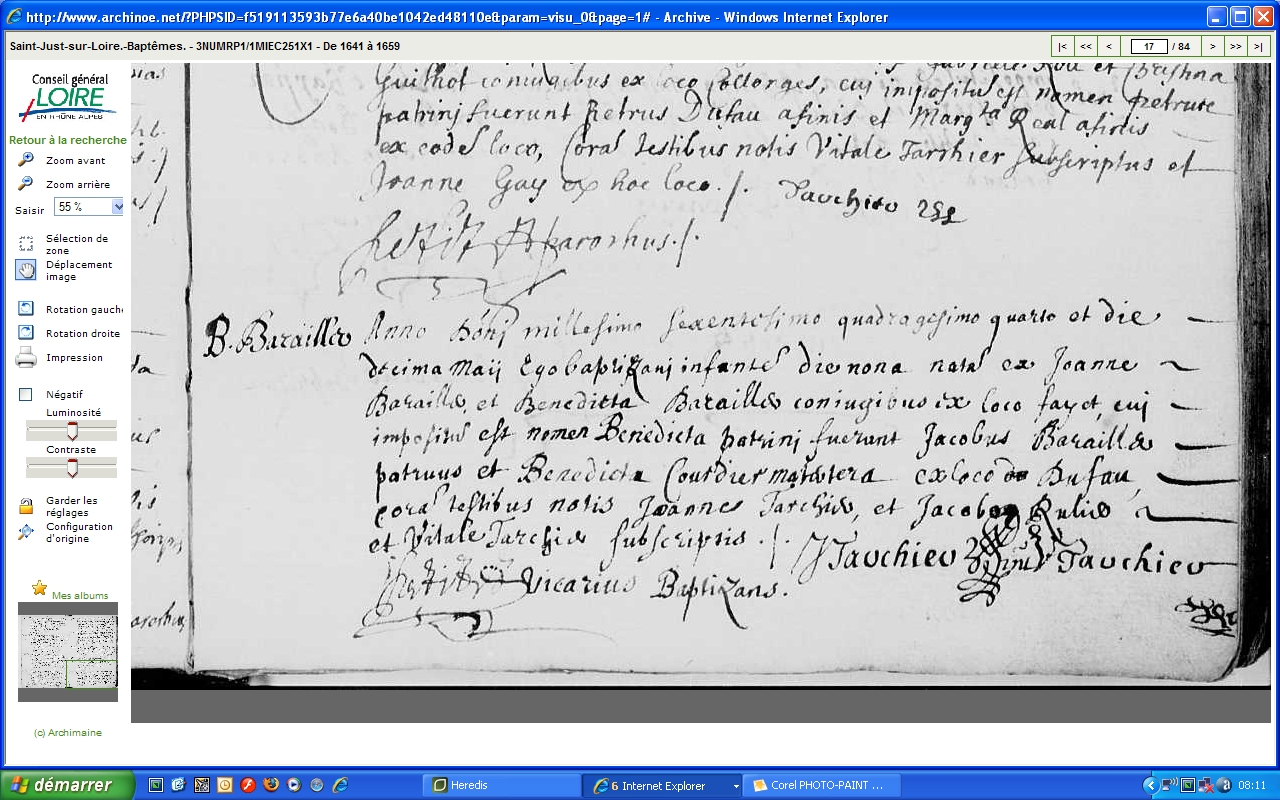 http://www.archinoe.net/?PHPSID=f519113593b77e6a40be1042ed48110e&param=visu_0&page=1# - Archive - Windows Internet Explorer
Saint-Just-sur-Loire.-Baptêmes. - 3NUMRP1/1MIEC251X1 - De 1641 à 1659
|< << < 17 / 84 > >> >|
Conseil général
LOIRE
EN RHÔNE ALPES
Retour à la recherche
Zoom avant
Zoom arrière
Saisir 55 %
Sélection de
zone
Déplacement
image
Rotation gauche
Rotation droite
Impression
Négatif
Luminosité
Contraste
Garder les
réglages
Configuration
d'origine
Mes albums
(c) Archimaine
Guilhot coniugibus ex loco cui impositus est nomen petrus
patrinj fuerunt Petrus Dufau afinis et Margta Real afinis
ex eodē loco, Corā testibus notis Vitale Tarchier subscriptus et
Joanne Gay ex hoc loco ./. Tauchieu
parochus ./.
B. Baraillēs Anno Dōnj millesimo sexentesimo quadragesimo quarto et die
decima Maij Ego baptizauj infantē die nona natā ex Joanne
Baraillē, et Benedicta Baraillēs coniugibus ex loco fayet, cuj
impositū est nomen Benedicta patrinj fuerunt Jacobus Barailles
patruus et Benedicta Courdier matertera ex loco Dufau,
corā testibus notis Joannes Tarchiē, et Jacobo
et Vitale Tarchiē subscriptis ./. Tauchieu Tauchieu
Vicarius Baptizans.
démarrer
Heredis
6 Internet Explorer
Corel PHOTO-PAINT ...
08:11